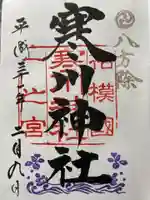 八方除
相模國
一之宮
寒川神社
平成三十一年二月九日